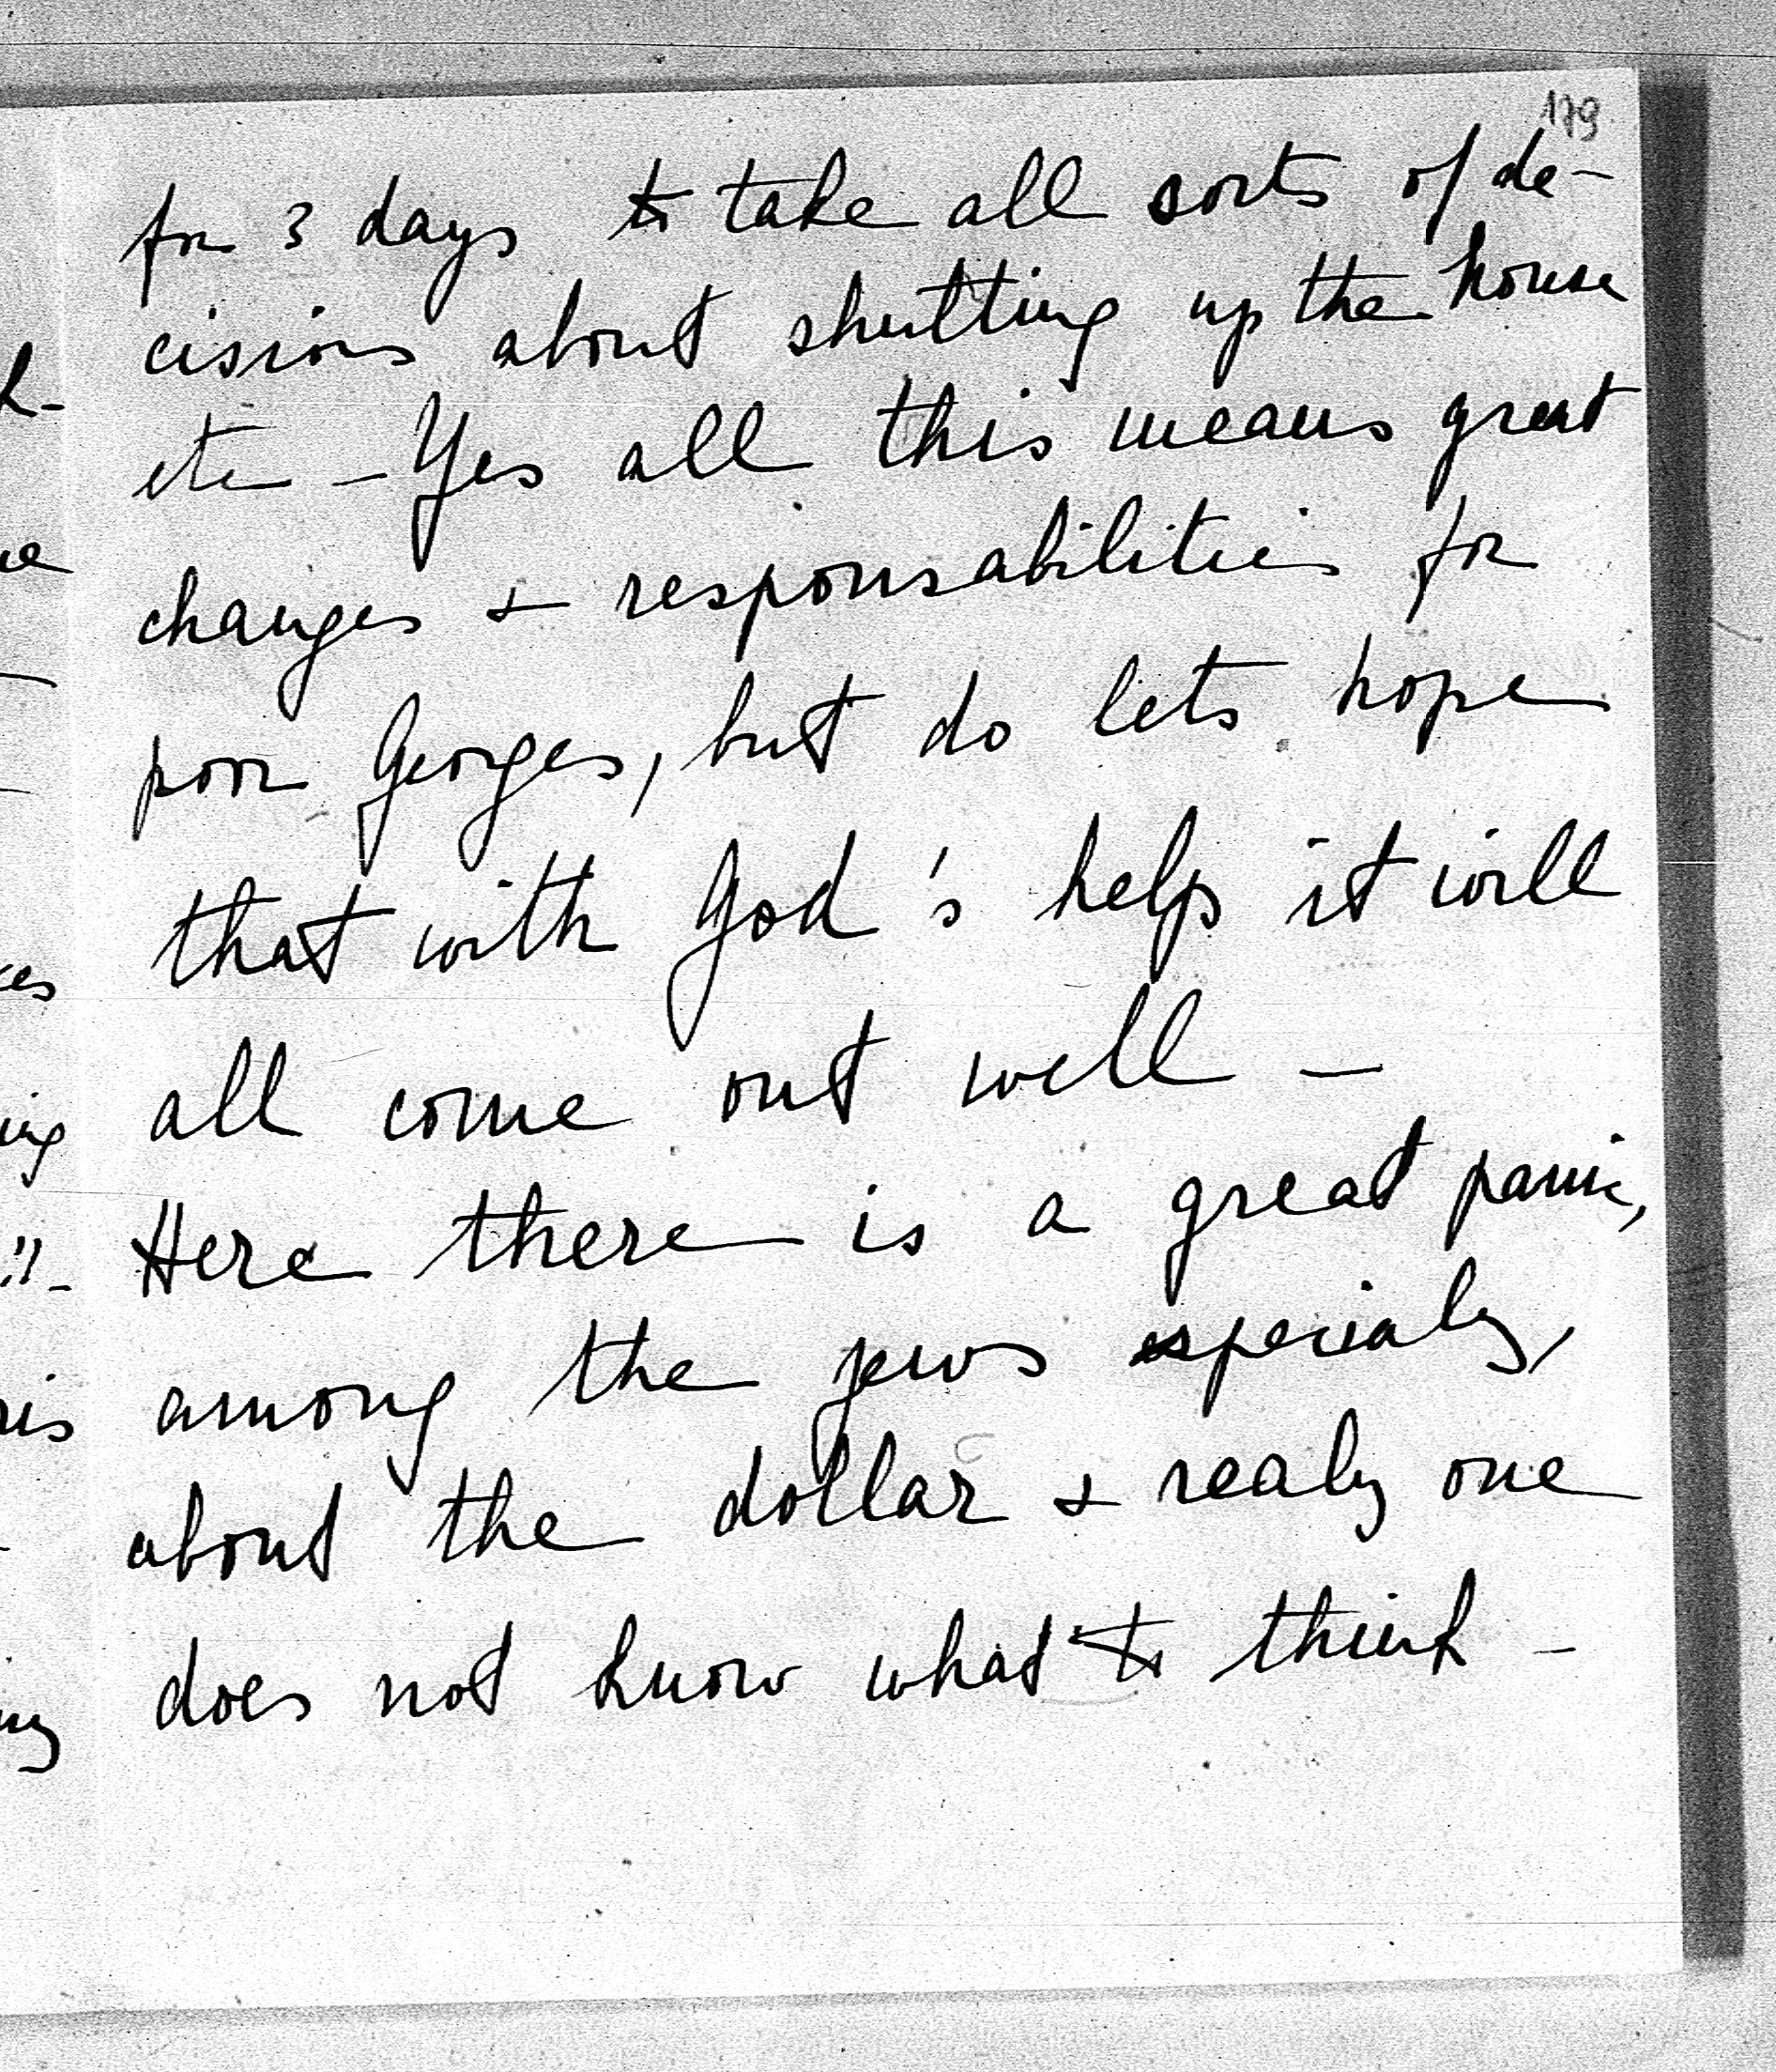 179
for 3 days to take all sorts of de-
cisions about shutting up the house
etc - Yes all this means great
changes & responsabilities for
poor Georges, but do lets hope
that with God's help it will
all come out well -
Here there is a great panic,
among the jews especialy,
about the dollar & realy one
does not know what to think -